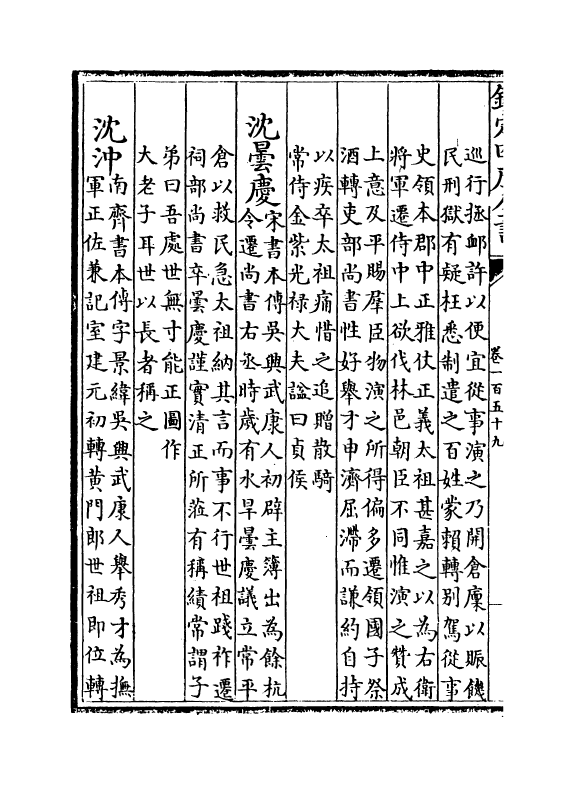 欽定四庫全書
卷一百五十九
巡行拯卹許以便宜從事演之乃開倉廩以賑饑
民刑獄有疑枉悉制遣之百姓蒙賴轉別駕從事
史領本郡中正雅仗正義太祖甚嘉之以為右衛
將軍遷侍中上欲伐林邑朝臣不同惟演之贊成
上意及平賜羣臣物演之所得偏多遷領國子祭
酒轉吏部尚書性好舉才申濟屈滯而謙約自持
以疾卒太祖痛惜之追贈散騎
常侍金紫光禄大夫諡曰貞侯
沈曇慶
宋書本傳吳興武康人初辟主簿出為餘杭
令遷尚書右丞時歲有水旱曇慶議立常平
倉以救民急太祖納其言而事不行世祖踐祚遷
祠部尚書卒曇慶謹實清正所蒞有稱績常謂子
弟曰吾處世無寸能正圖作
大老子耳世以長者稱之
沈沖
南齊書本傳字景緯吳興武康人舉秀才為撫
軍正佐兼記室建元初轉黄門郎世祖即位轉